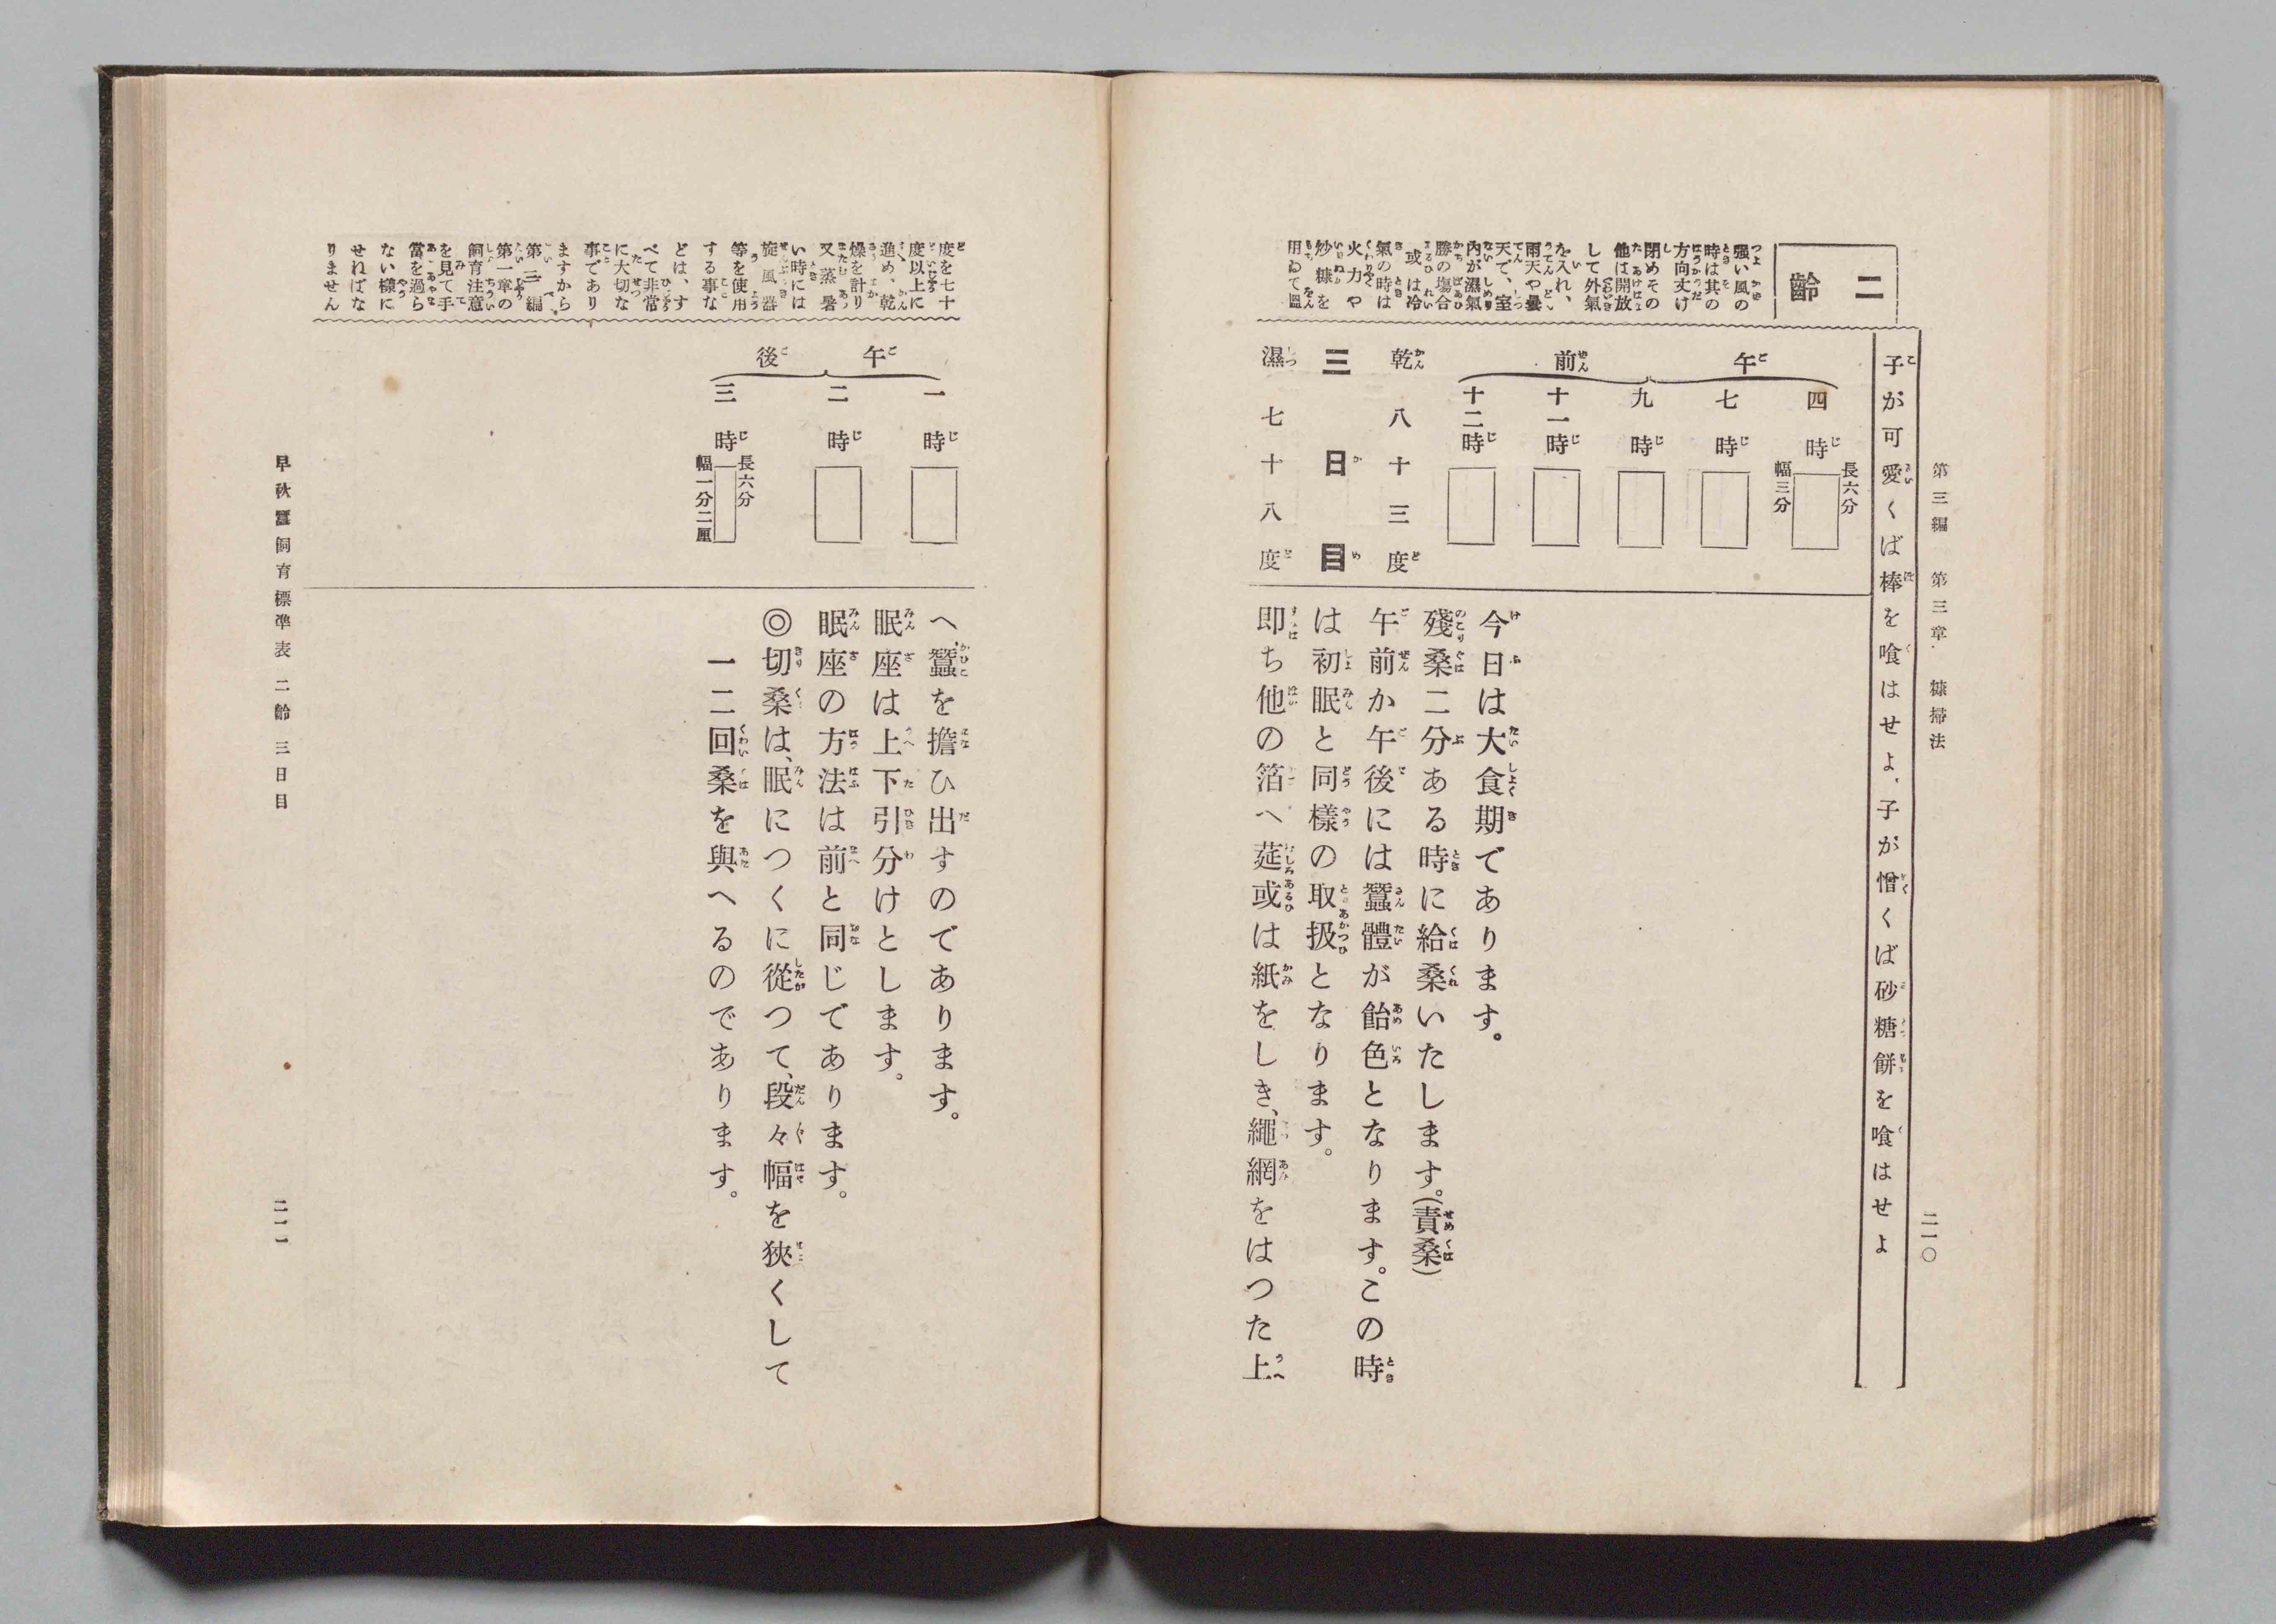 第三編　第三章　糠掃法
二一〇
子が可愛くば棒を喰はせよ、子が憎くば砂糖餅を喰はせよ
二齡
强い風の
時は其の
方向丈け
閉めその
他は開放
して外氣
を入れ、
雨天や曇
天で、室
內が濕氣
勝の場合
或は冷
氣の時は
火力や
炒糠を
用ゐて溫
午前
四時
長六分
幅三分
七時
九時
十一時
十二時
乾八十三度
三日目
濕七十八度
今日は大食期であります。
殘桑二分ある時に給桑いたします。(責桑)
午前か午後には蠶體が飴色となります。この時
は初眠と同樣の取扱となります。
卽ち他の箔へ莚或は紙をしき、繩網をはつた上
度を七十
度以上に
進め、乾
燥を計り
又蒸暑
い時には
旋風器
等を使用
する事な
どは、す
べて非常
に大切な
事であり
ますから
第二編
第一章の
飼育注意
を見て手
當を過ら
ない樣に
せねばな
りません
午後
一時
二時
三時
長六分
幅一分二厘
へ、蠶を擔ひ出すのであります。
眠座は上下引分けとします。
眠座の方法は前と同じであります。
◎切桑は、眠につくに從つて、段々幅を狹くして
一二回桑を與へるのであります。
早秋蠶飼育標準表　二齡　三日目
二一一